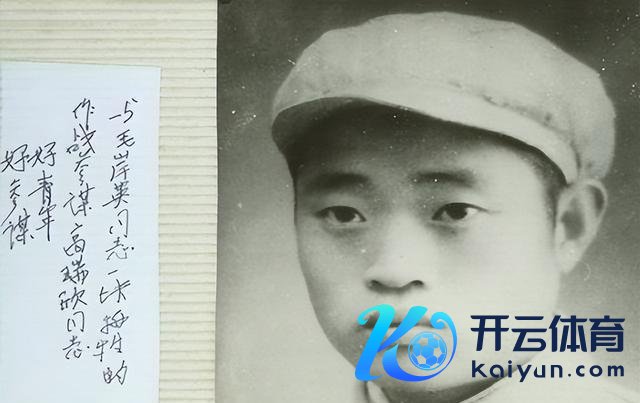 与毛岸英同志一块牺牲的
作战参谋高瑞欣同志
好青年
好参谋
开云体育
kaiyun.com